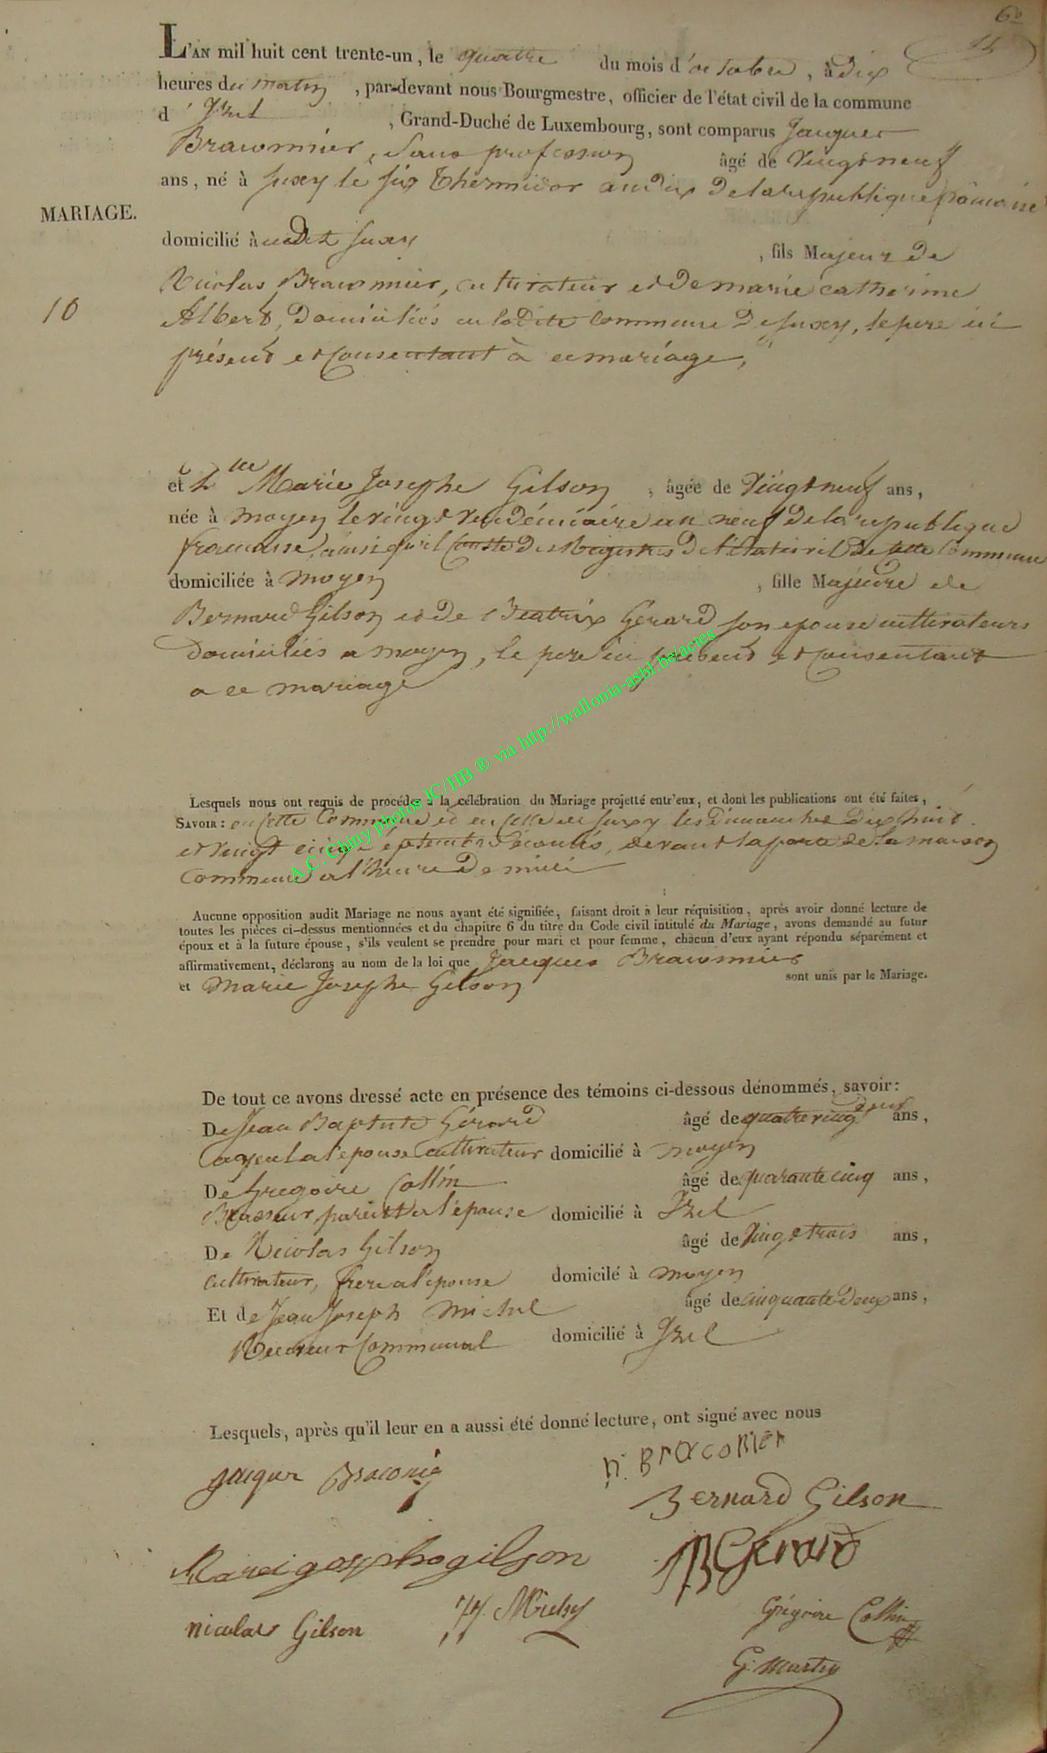 60
14
L'AN mil huit cent trente-un, le quattre du mois d'octobre, à dix
heures du matin, par-devant nous Bourgmestre, officier de l'état civil de la commune
d'Izel, Grand-Duché de Luxembourg, sont comparus Jacques
Braconnier, sans profession âgé de vingt neuf
ans, né à Suxy le six thermidor an dix de la republique francaise
MARIAGE.
domicilié à audit Suxy, fils Majeur de
10
Nicolas Braconnier, cultivateur et de marie catherine
Albert, domiciliés en ladite commune de Suxy, le pere ici
présent et consentant à ce mariage,
et Dlle Marie Josephe Gilson, âgée de vingt neuf ans,
née à moyen le vingt vendémiaire an neuf de la republique
francaise, ainsi qu'il conste des Registres de l'état civil de cette commune
domiciliée à moyen, fille Majeure de
Bernard Gilson et de Beatrix Gérard son epouse cultivateurs
domiciliés a moyen, le pere ici présent et consentant
a ce mariage
A.C. Chiny photos JC/HB ® via http://wallonia-asbl.be/actes
Lesquels nous ont requis de procéder à la célébration du Mariage projetté entr'eux, et dont les publications ont été faites,
SAVOIR : en cette commune et en celle de Suxy les dimanches dix huit
et vingt cinq septembre écoulés, devant la porte de la maison
commune a l'heure de midi
Aucune opposition audit Mariage ne nous ayant été signifiée, faisant droit à leur réquisition, après avoir donné lecture de
toutes les pièces ci-dessus mentionnées et du chapitre 6 du titre du Code civil intitulé du Mariage, avons demandé au futur
époux et à la future épouse, s'ils veulent se prendre pour mari et pour femme, chacun d'eux ayant répondu séparément et
affirmativement, déclarons au nom de la loi que Jacques Braconnier
et Marie Josephe Gilson sont unis par le Mariage.
De tout ce avons dressé acte en présence des témoins ci-dessous dénommés, savoir :
De Jean Baptiste Gérard âgé de quatre vingt deux ans,
ayeul a l'epouse cultivateur domicilié à moyen
De Gregoire Collin âgé de quarante cinq ans,
Brasseur, parent a l'épouse domicilié à Izel
De Nicolas Gilson âgé de vingt trois ans,
cultivateur, frere a l'epouse domicilé à moyen
Et de Jean Joseph michel âgé de cinquante deux ans,
Receveur communal domicilié à Izel
Lesquels, après qu'il leur en a aussi été donné lecture, ont signé avec nous
Jacque Braconie
n. Braconier
Bernard Gilson
JB Gerard
nicolas Gilson
Grégoire Collin